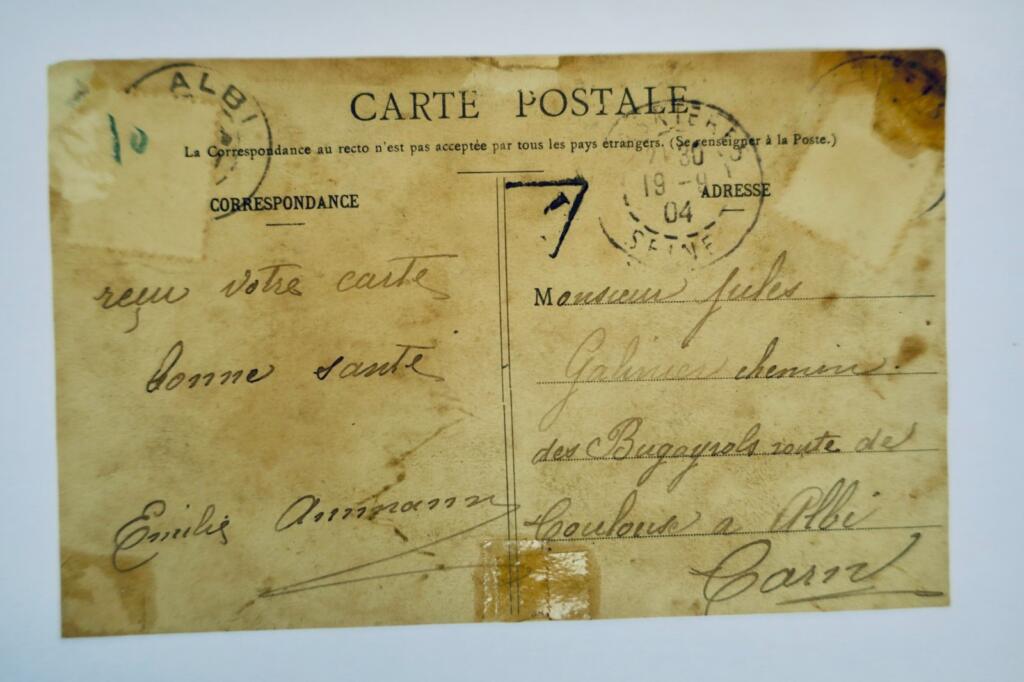 ALBI
10
CARTE POSTALE
La Correspondance au recto n'est pas acceptée par tous les pays étrangers. (Se renseigner à la Poste.)
CORRESPONDANCE
reçu votre carte
bonne santé
Emilie Ammann
30
19 - 9
04
SEINE
ADRESSE
Monsieur Jules
Galinier chemin
des route de
Toulouse a Albi
Tarn